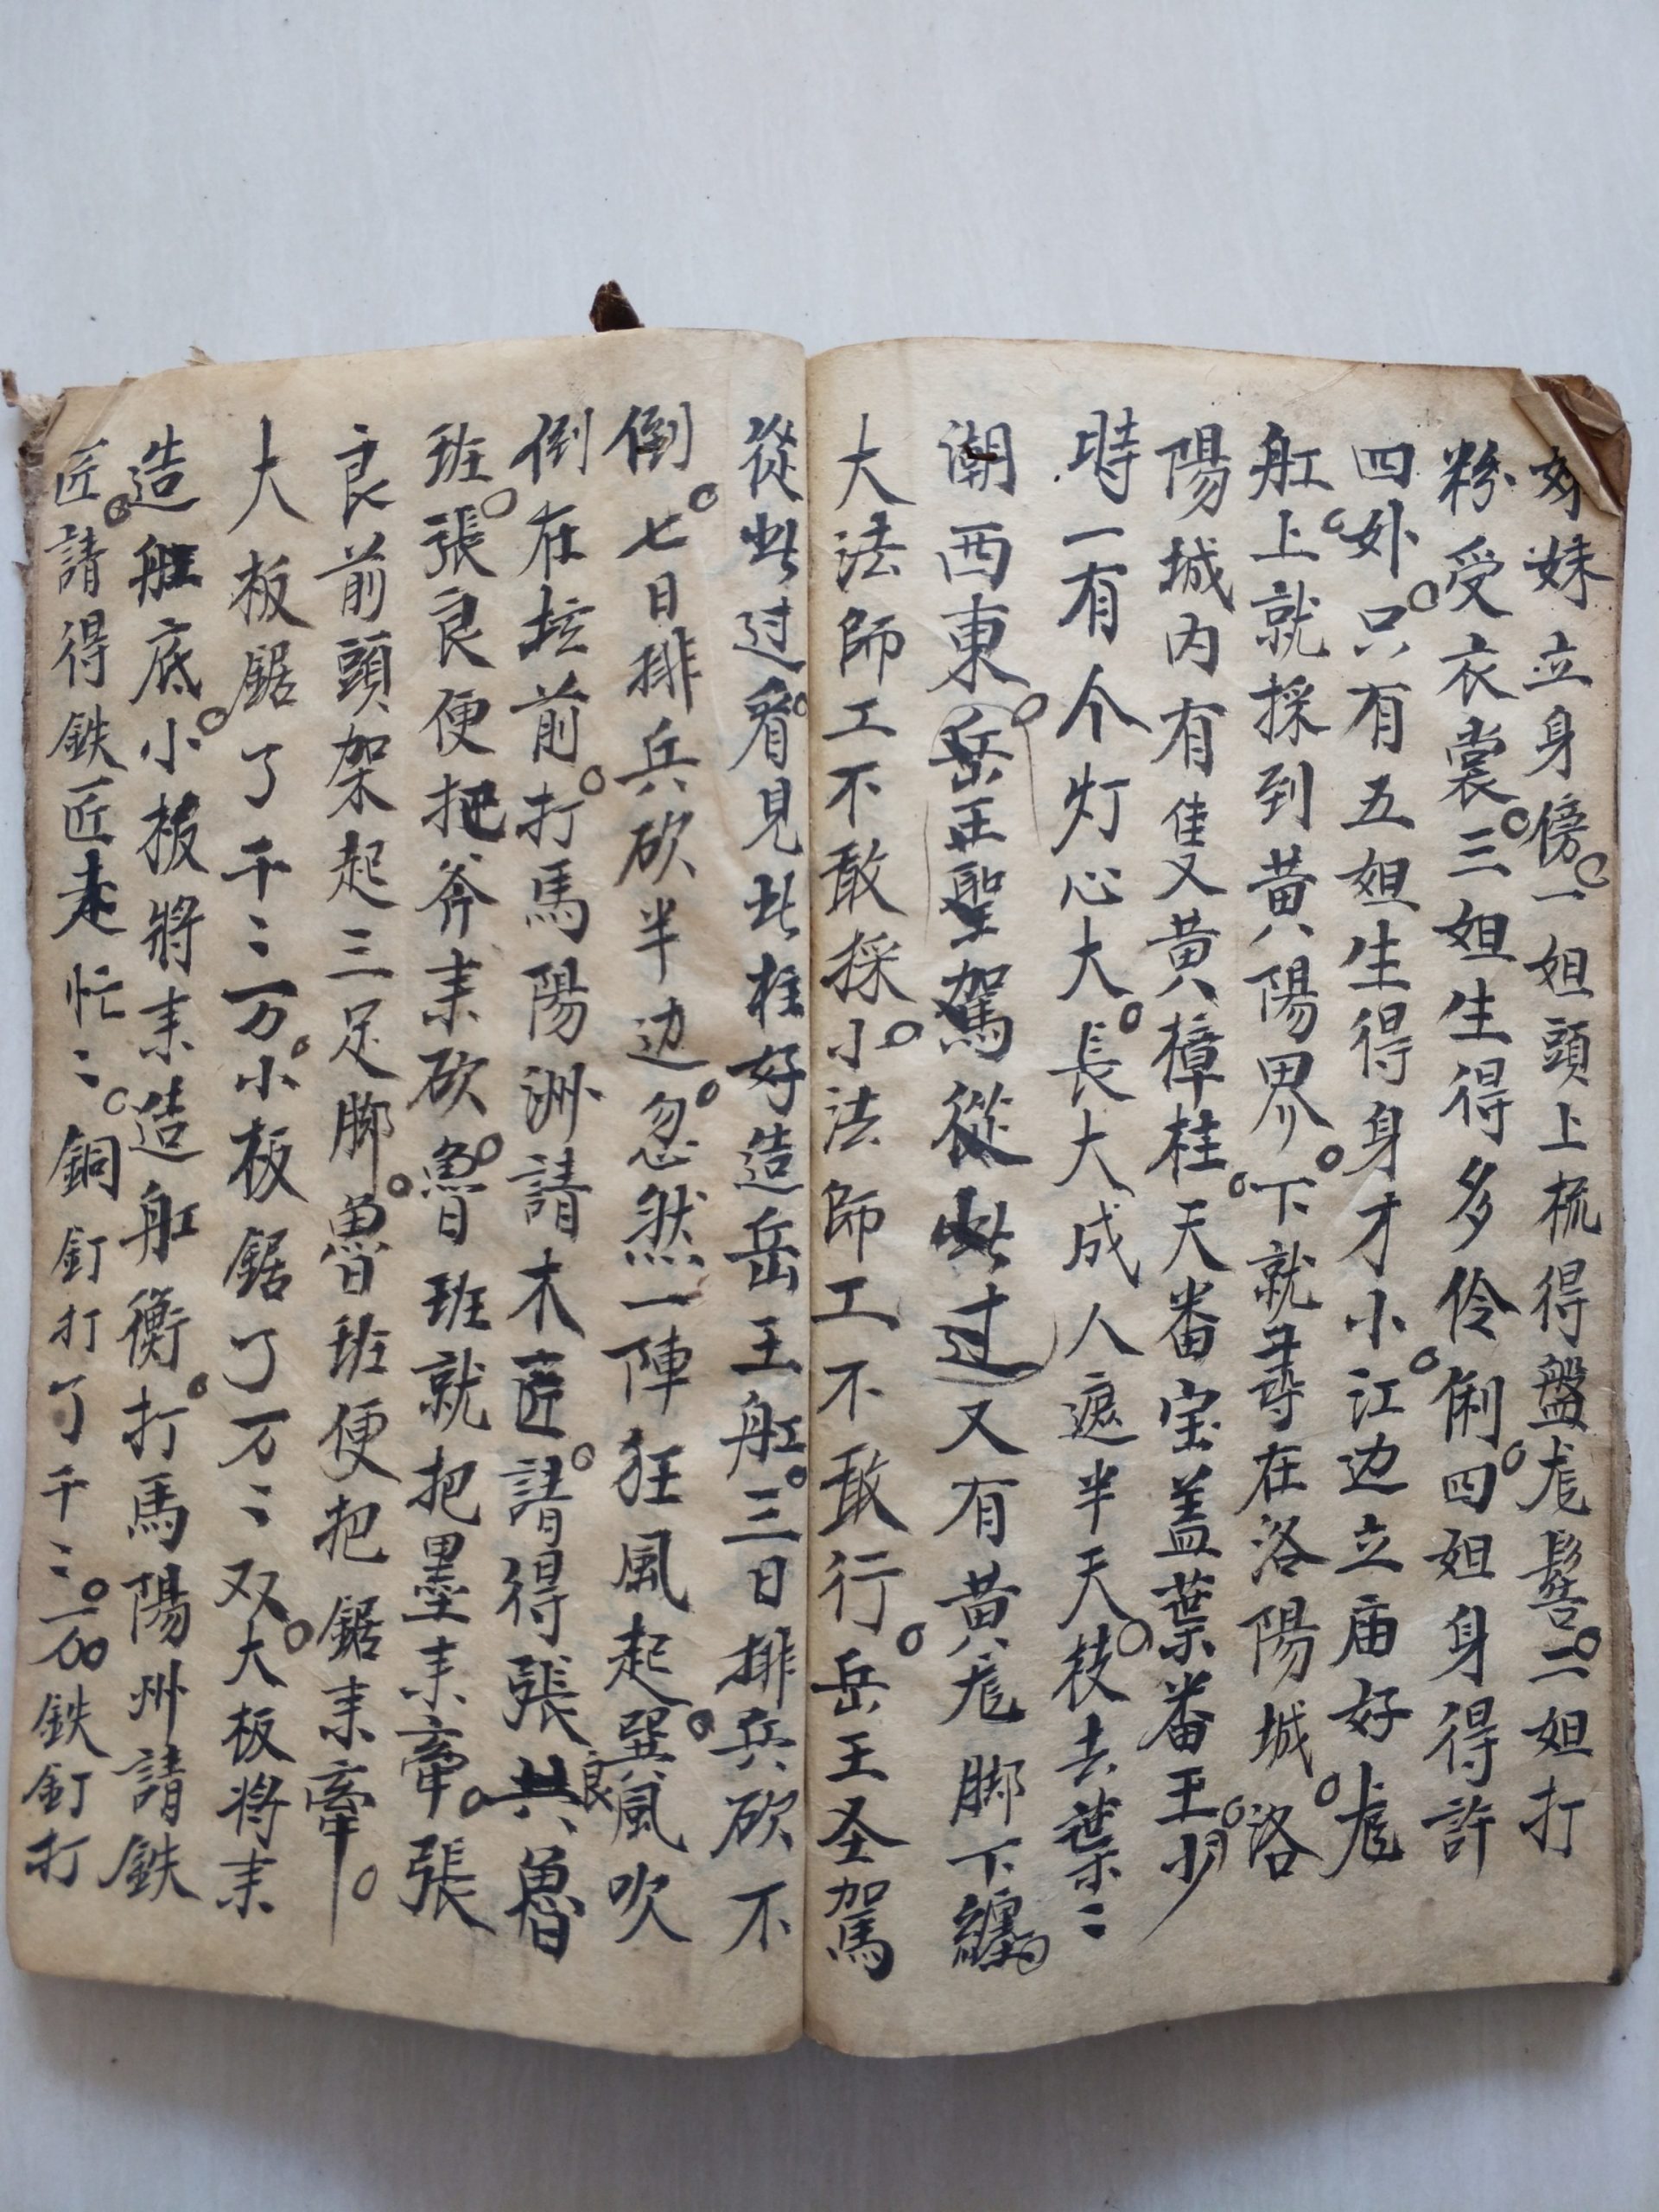 妹妹立身傍一姐頭上梳得盤龙髻二姐打
粉受衣裳三姐生得多伶俐四姐身得許
四外只有五姐生得身才小江边立庙好龙
舡上就採到黄陽界下就尋在洛陽城洛
陽城内有隻黄樟桂天番宝盖葉番王少
時一有个灯心大長大成人遮半天枝去葉〻
潮西東岳王聖駕從此过又有黄龙脚下纏
大法師工不敢採小法師工不敢行岳王圣駕
從此过看見此桂好造岳王舡三日排兵砍不
倒七日排兵砍半边忽然一陣狂風起巽風吹
倒在坛前打馬陽洲請木匠請得張良共魯
班張良便把斧来砍魯班就把墨来牽張
良前頭架起三足脚魯班便把鋸来牽
大板鋸了千〻万小板鋸了万〻双大板将来
造舡底小板將来造舡衡打馬陽州請鉄
匠請得鉄匠走忙〻銅釘打了千〻万鉄釘打